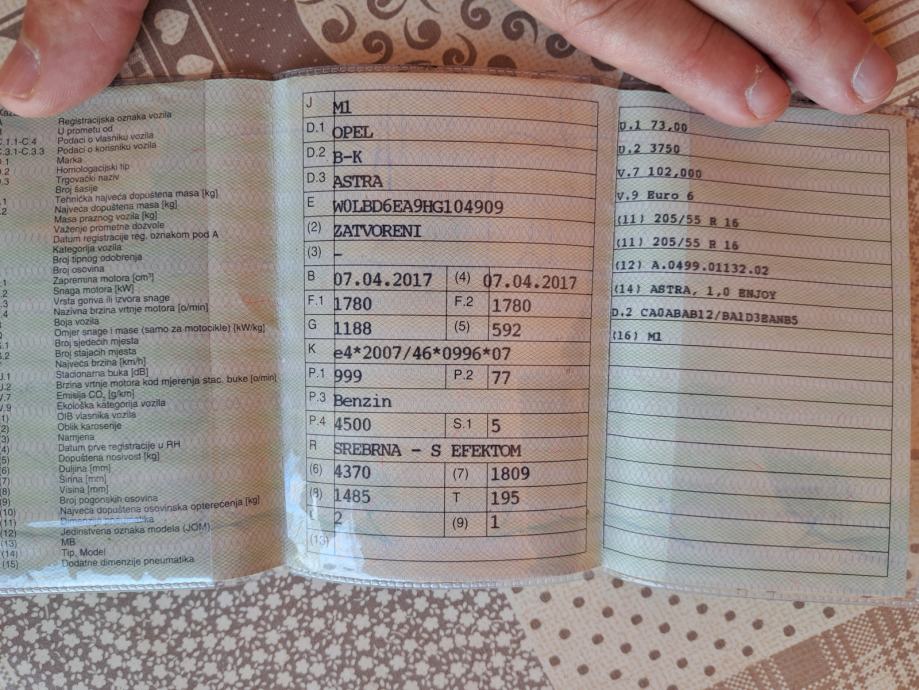 A Registracijska oznaka vozila
U prometu od
C.1.1-C.4 Podaci o vlasniku vozila
C.3.1-C.3.3 Podaci o korisniku vozila
D.1 Marka
D.2 Homologacijski tip
D.3 Trgovački naziv
Broj šasije
Tehnička najveća dopuštena masa [kg]
Najveća dopuštena masa [kg]
Masa praznog vozila [kg]
Važenje prometne dozvole
Datum registracije reg. oznakom pod A
Kategorija vozila
Broj tipnog odobrenja
Broj osovina
Zapremina motora [cm³]
Snaga motora [kW]
Vrsta goriva ili izvora snage
Nazivna brzina vrtnje motora [o/min]
Boja vozila
Omjer snage i mase (samo za motocikle) [kW/kg]
Broj sjedećih mjesta
Broj stajaćih mjesta
Najveća brzina [km/h]
Stacionarna buka [dB]
Brzina vrtnje motora kod mjerenja stac. buke [o/min]
V.7 Emisija CO₂ [g/km]
V.9 Ekološka kategorija vozila
(1) OIB vlasnika vozila
(2) Oblik karoserije
(3) Namjena
(4) Datum prve registracije u RH
(5) Dopuštena nosivost [kg]
(6) Duljina [mm]
(7) Širina [mm]
(8) Visina [mm]
(9) Broj pogonskih osovina
(10) Najveća dopuštena osovinska opterećenja [kg]
(11)
(12) Jedinstvena oznaka modela (JOM)
(13) MB
(14) Tip, Model
(15) Dodatne dimenzije pneumatika
J M1
D.1 OPEL
D.2 B-K
D.3 ASTRA
E W0LBD6EA9HG104909
(2) ZATVORENI
(3) –
B 07.04.2017 (4) 07.04.2017
F.1 1780 F.2 1780
G 1188 (5) 592
K e4*2007/46*0996*07
P.1 999 P.2 77
P.3 Benzin
P.4 4500 S.1 5
R SREBRNA - S EFEKTOM
(6) 4370 (7) 1809
(8) 1485 T 195
2 (9) 1
(13)
U.1 73,00
U.2 3750
V.7 102,000
V.9 Euro 6
(11) 205/55 R 16
(11) 205/55 R 16
(12) A.0499.01132.02
(14) ASTRA, 1,0 ENJOY
D.2 CA0ABAB12/BA1D3EANB5
(16) M1